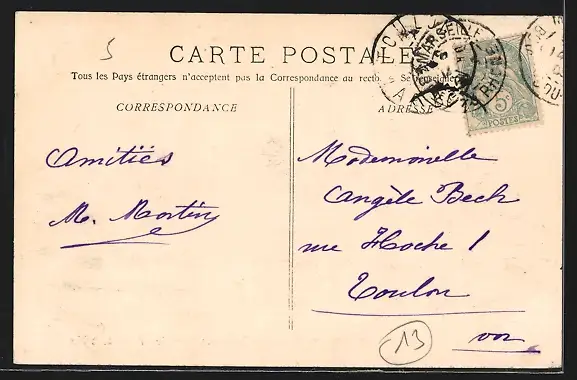 5
CARTE POSTALE
Tous les Pays étrangers n'acceptent pas la Correspondance au recto. Se renseigner
CORRESPONDANCE
ADRESSE
Amitiés
M. Martin
Mademoiselle
Angèle Bech
rue Hoche 1
Toulon
var
13
MARSEILLE
RHONE
5c
POSTES